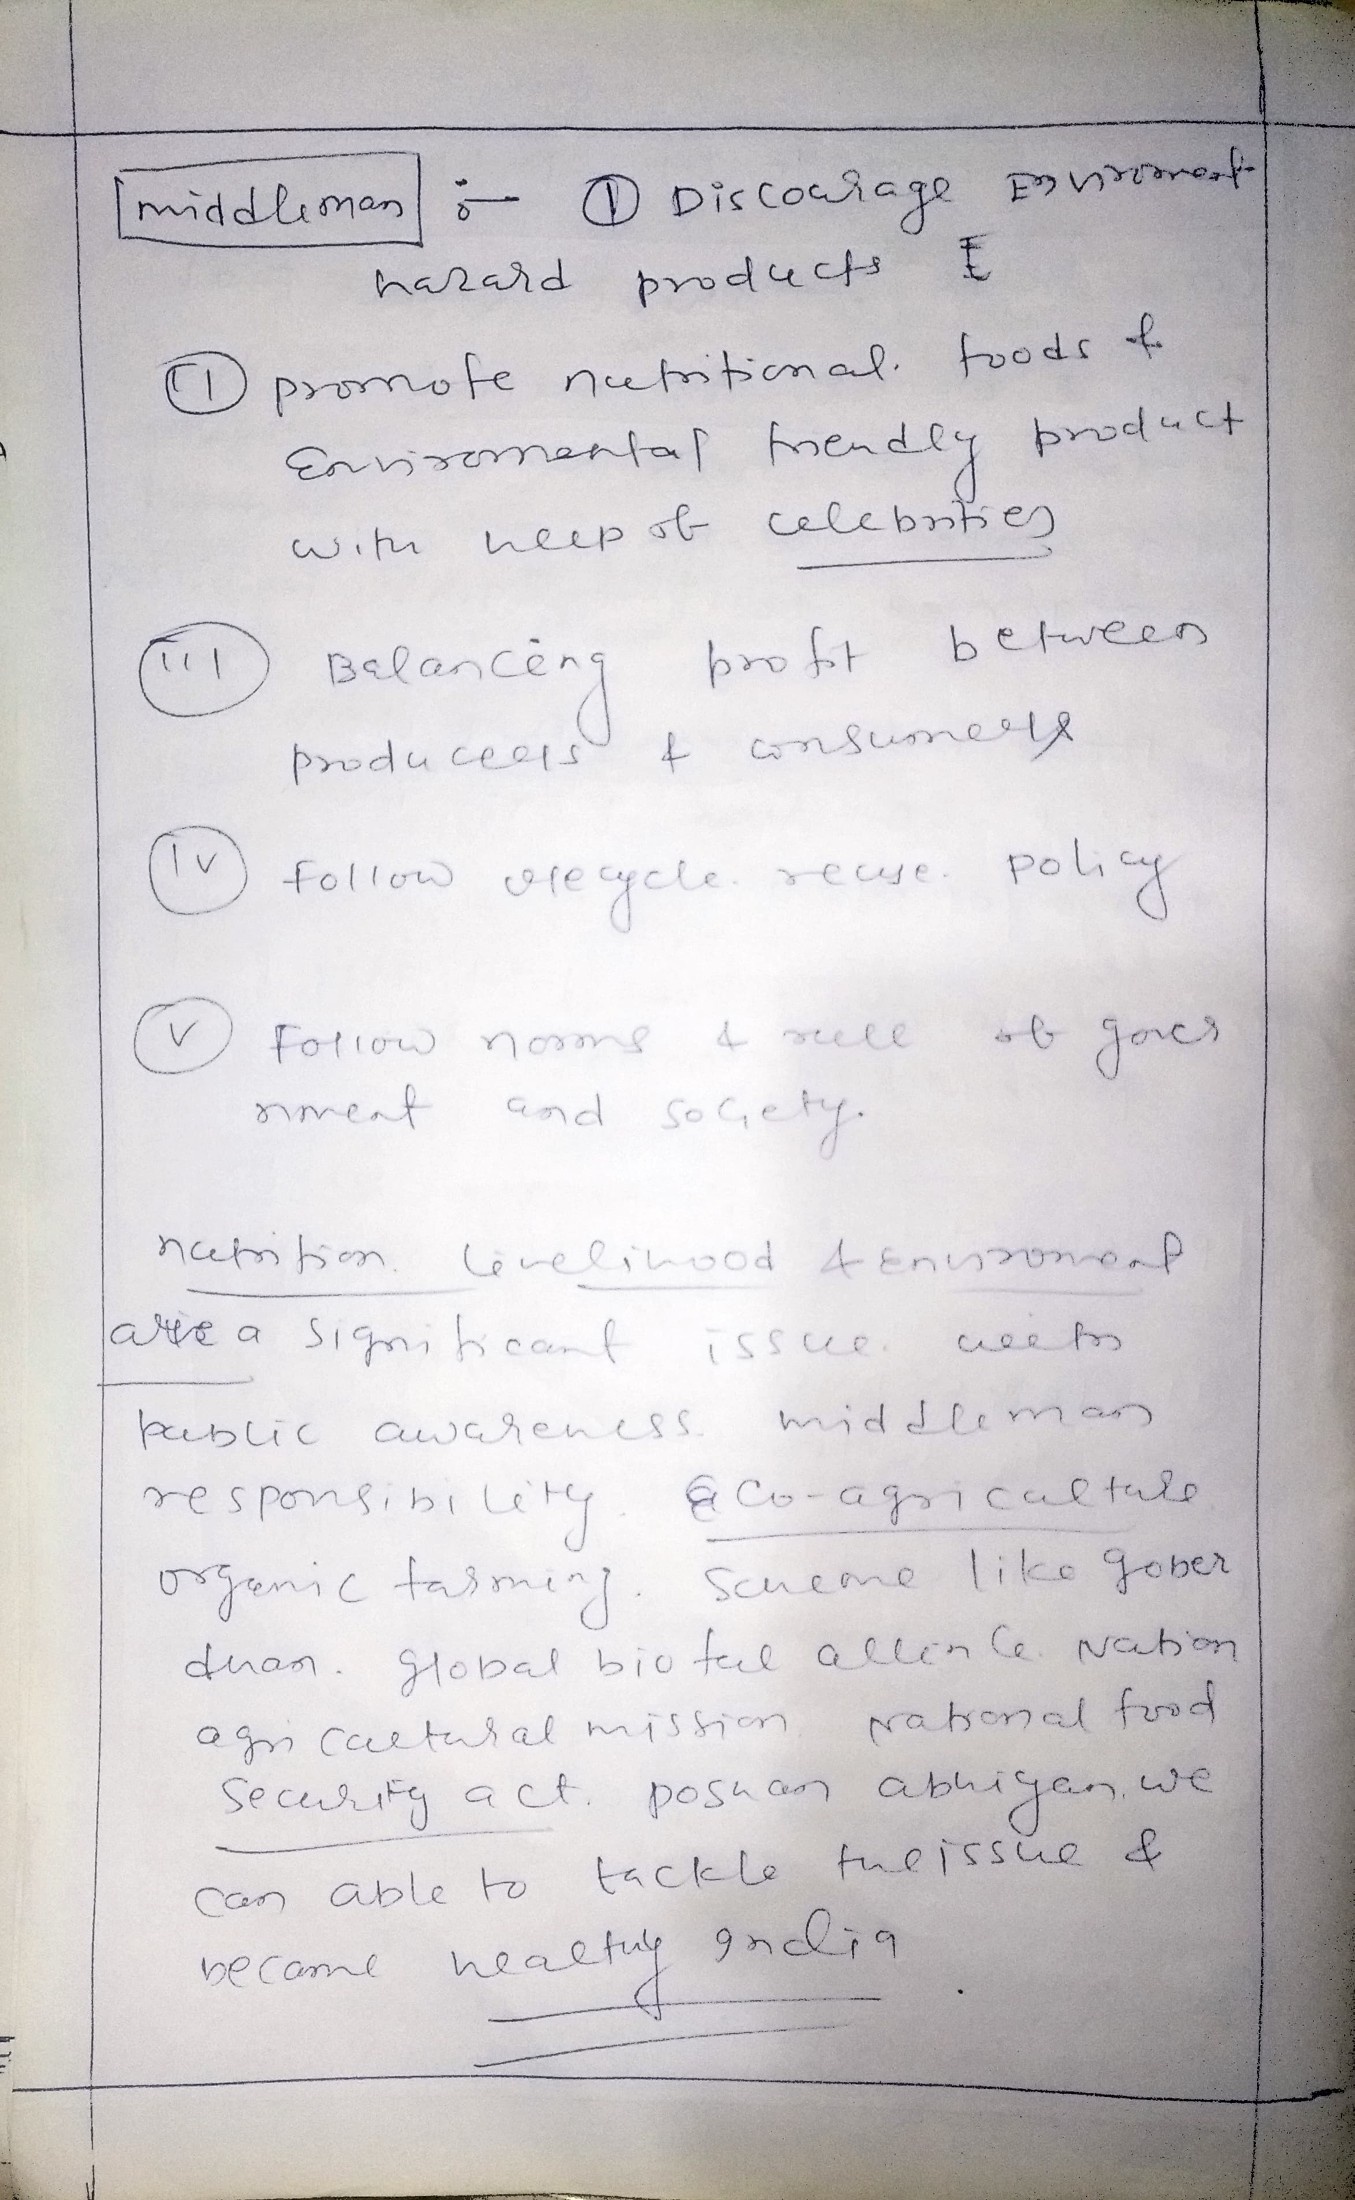 middleman :- ① Discourage Enviroment
hazard products
(ii) promote nutritional foods &
Enviromental friendly product
with help of celebrities
(iii) Balancing profit between
producers & consumers
(iv) Follow recycle. reuse. policy
(v) Follow norms & rule of gover
nment and society.
nutrition. livelihood & Enviroment
are a significant issue. with
public awareness. middleman
responsibility. eco-agriculture
organic farming. Scheme like gober
dhan. global biofuel allince. Nation
agricultural mission National food
Security act. poshan abhiyan, we
can able to tackle the issue &
became healthy India.